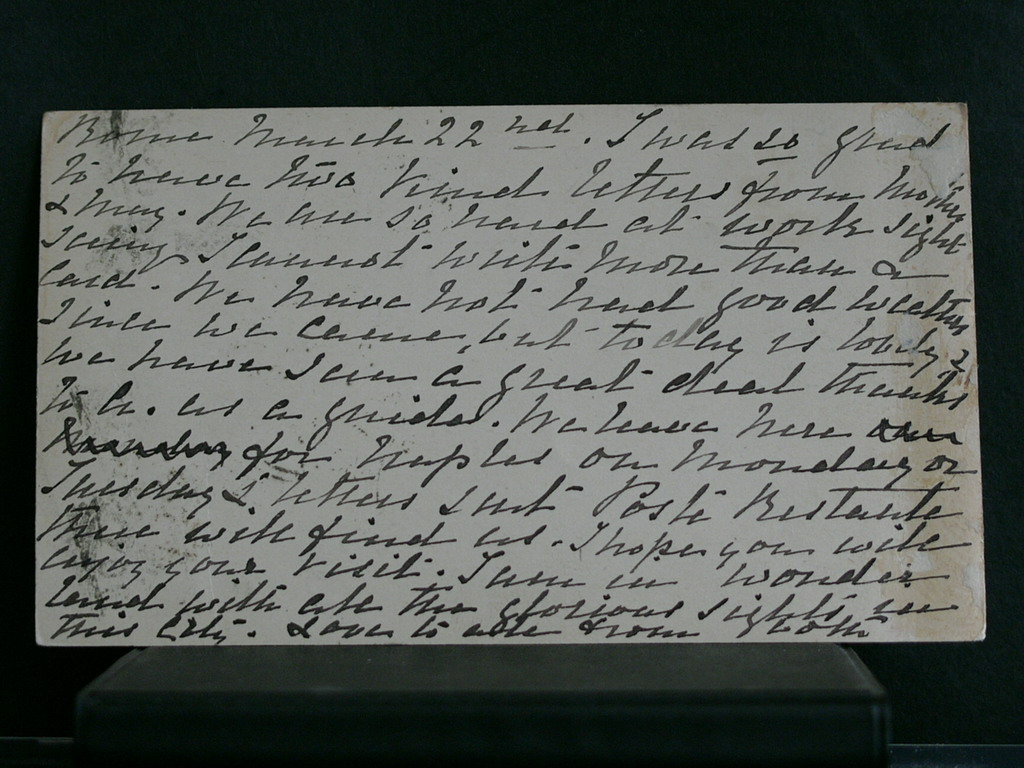 Rome March 22nd. I was so glad
to have two kind letters from Mother
& May. We are so hard at work sight
seeing I cannot write more than a
card. We have not had good weather
since we came, but today is lovely &
we have seen a great deal thanks
to A. as a guide. We leave here
for Naples on Monday or
Tuesday & letters sent Poste Restante
there will find us. I hope you will
enjoy your visit. I am in wonder
land with all the glorious sights in
this City. Love to all from